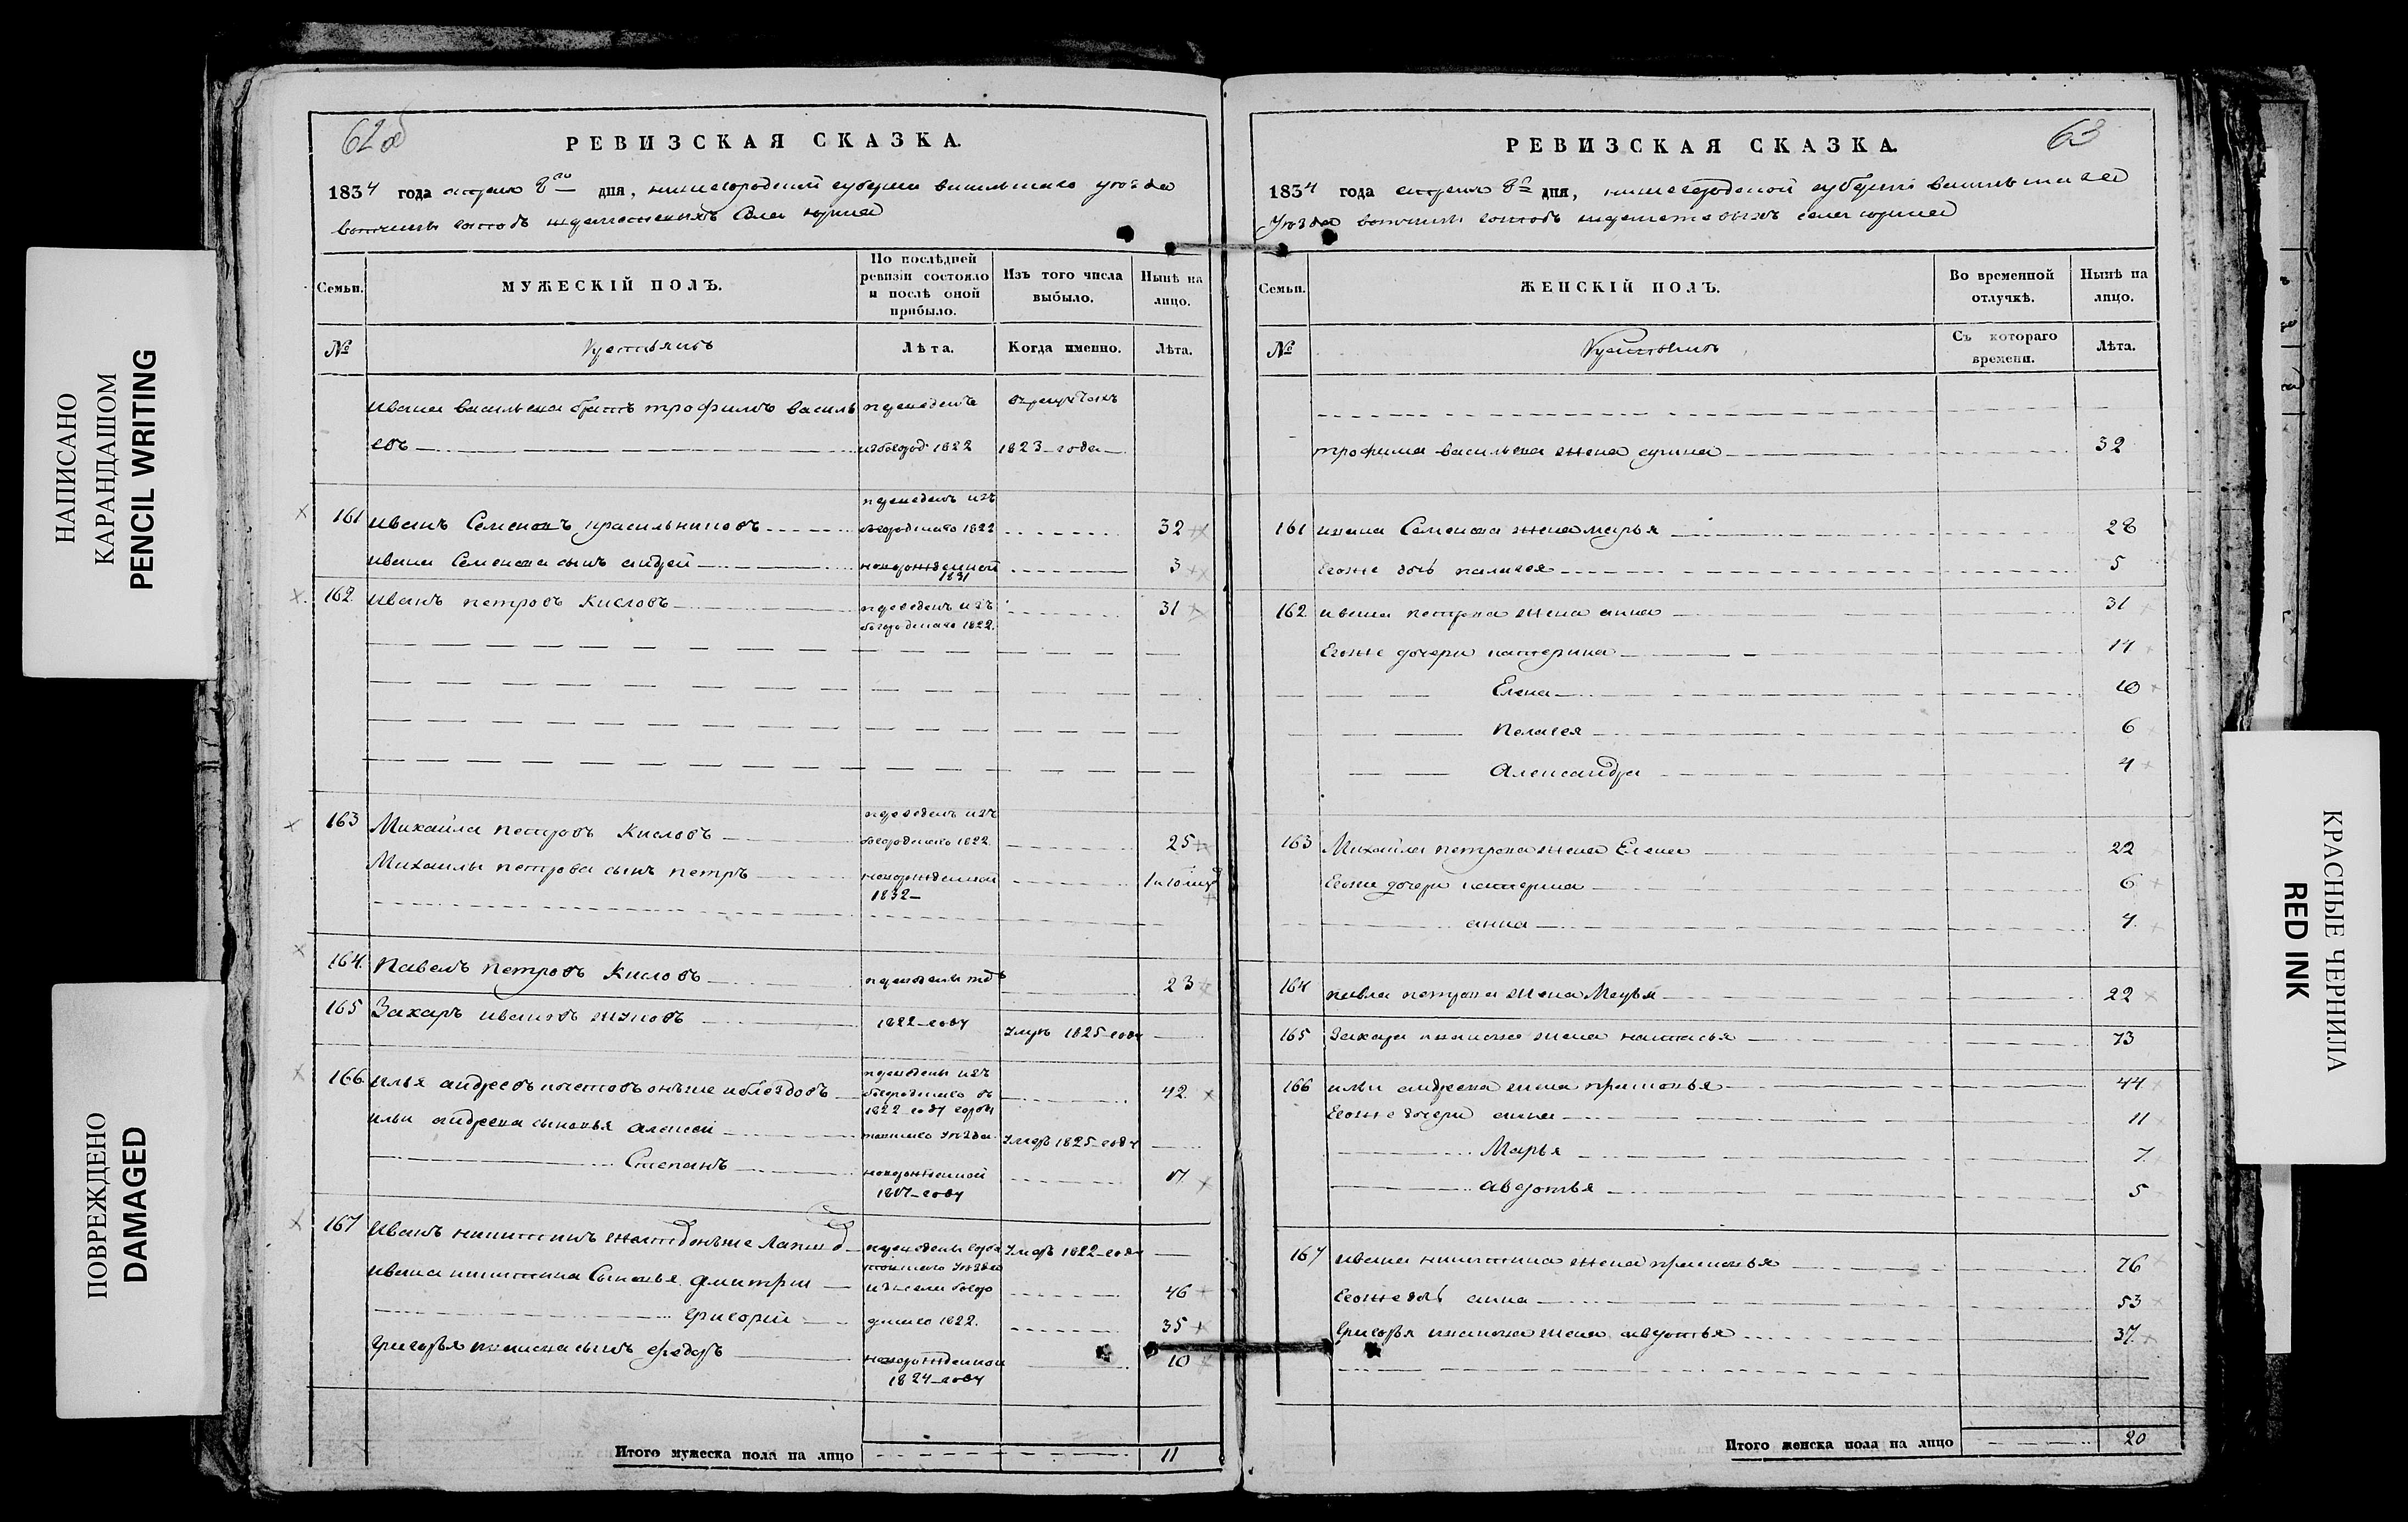 НАПИСАНО
КАРАНДАШОМ
PENCIL WRITING
ПОВРЕЖДЕНО
DAMAGED
КРАСНЫЕ ЧЕРНИЛА
RED INK
62 об
РЕВИЗСКАЯ СКАЗКА.
1834 года апреля 8го дня, нижегородской губернии васильского уезда
вотчины господъ шереметевыхъ села юрина
Семьи. МУЖЕСКІЙ ПОЛЪ. По послѣдней ревизіи состояло и послѣ оной прибыло. Изъ того числа выбыло. Нынѣ на лицо.
№ Крестьянъ Лѣта. Когда именно. Лѣта.
ивана васильева братъ трофимъ василь переведенъ въ рекруты
евъ 1822 1823 года
161 иванъ Семеновъ красильниковъ переведенъ изъ богородцкаго 1822 32
ивана Семенова сынъ андрей новорожденной 1831 3
162 иванъ петровъ Кисловъ переведенъ изъ богородцкаго 1822. 31
163 Михайла петровъ Кисловъ переведенъ изъ богородцкаго 1822. 25
Михайлы петрова сынъ петръ новорожденной 1832
164. павелъ петровъ Кисловъ 23
165 Захаръ ивановъ жуковъ 1822 году умре 1825 году
166 илья андреевъ переведены изъ богородцкаго въ 1822 году 42.
ильи андреева сыновья алексей уезда умеръ 1825 году
Степанъ новорожденной 1817 году 17
167 иванъ никитинъ умеръ 1822 году
ивана никитина Сыновья дмитрий 46
григорий 1822. 35
григорья иванова сынъ федоръ новорожденной 1824 году 10
Итого мужеска пола на лицо 11
63
РЕВИЗСКАЯ СКАЗКА.
1834 года апреля 8го дня, нижегородской губернии васильскаго
уезда вотчины господъ шереметевыхъ села юрина
Семьи. ЖЕНСКІЙ ПОЛЪ. Во временной отлучкѣ. Нынѣ на лицо.
№ Крестьянъ Съ котораго времени. Лѣта.
трофима васильева жена 32
161 ивана Семенова жена марья 28
Егоже дочь палагея 5
162 ивана петрова жена анна 31
Егоже дочери катерина 14
Елена 10
пелагея 6
Александра 4
163 Михайлы петрова жена Елена 22
Егоже дочери катерина 6
анна 4.
164 павла петрова жена Марья 22
165 Захара иванова жена настасья 73
166 ильи андреева жена прасковья 44
Егоже дочери анна 11
Марья 7
авдотья 5
167 ивана никитина жена прасковья 76
Егоже дочь анна 53
григорья иванова жена авдотья 37.
Итого женска пола на лицо 20